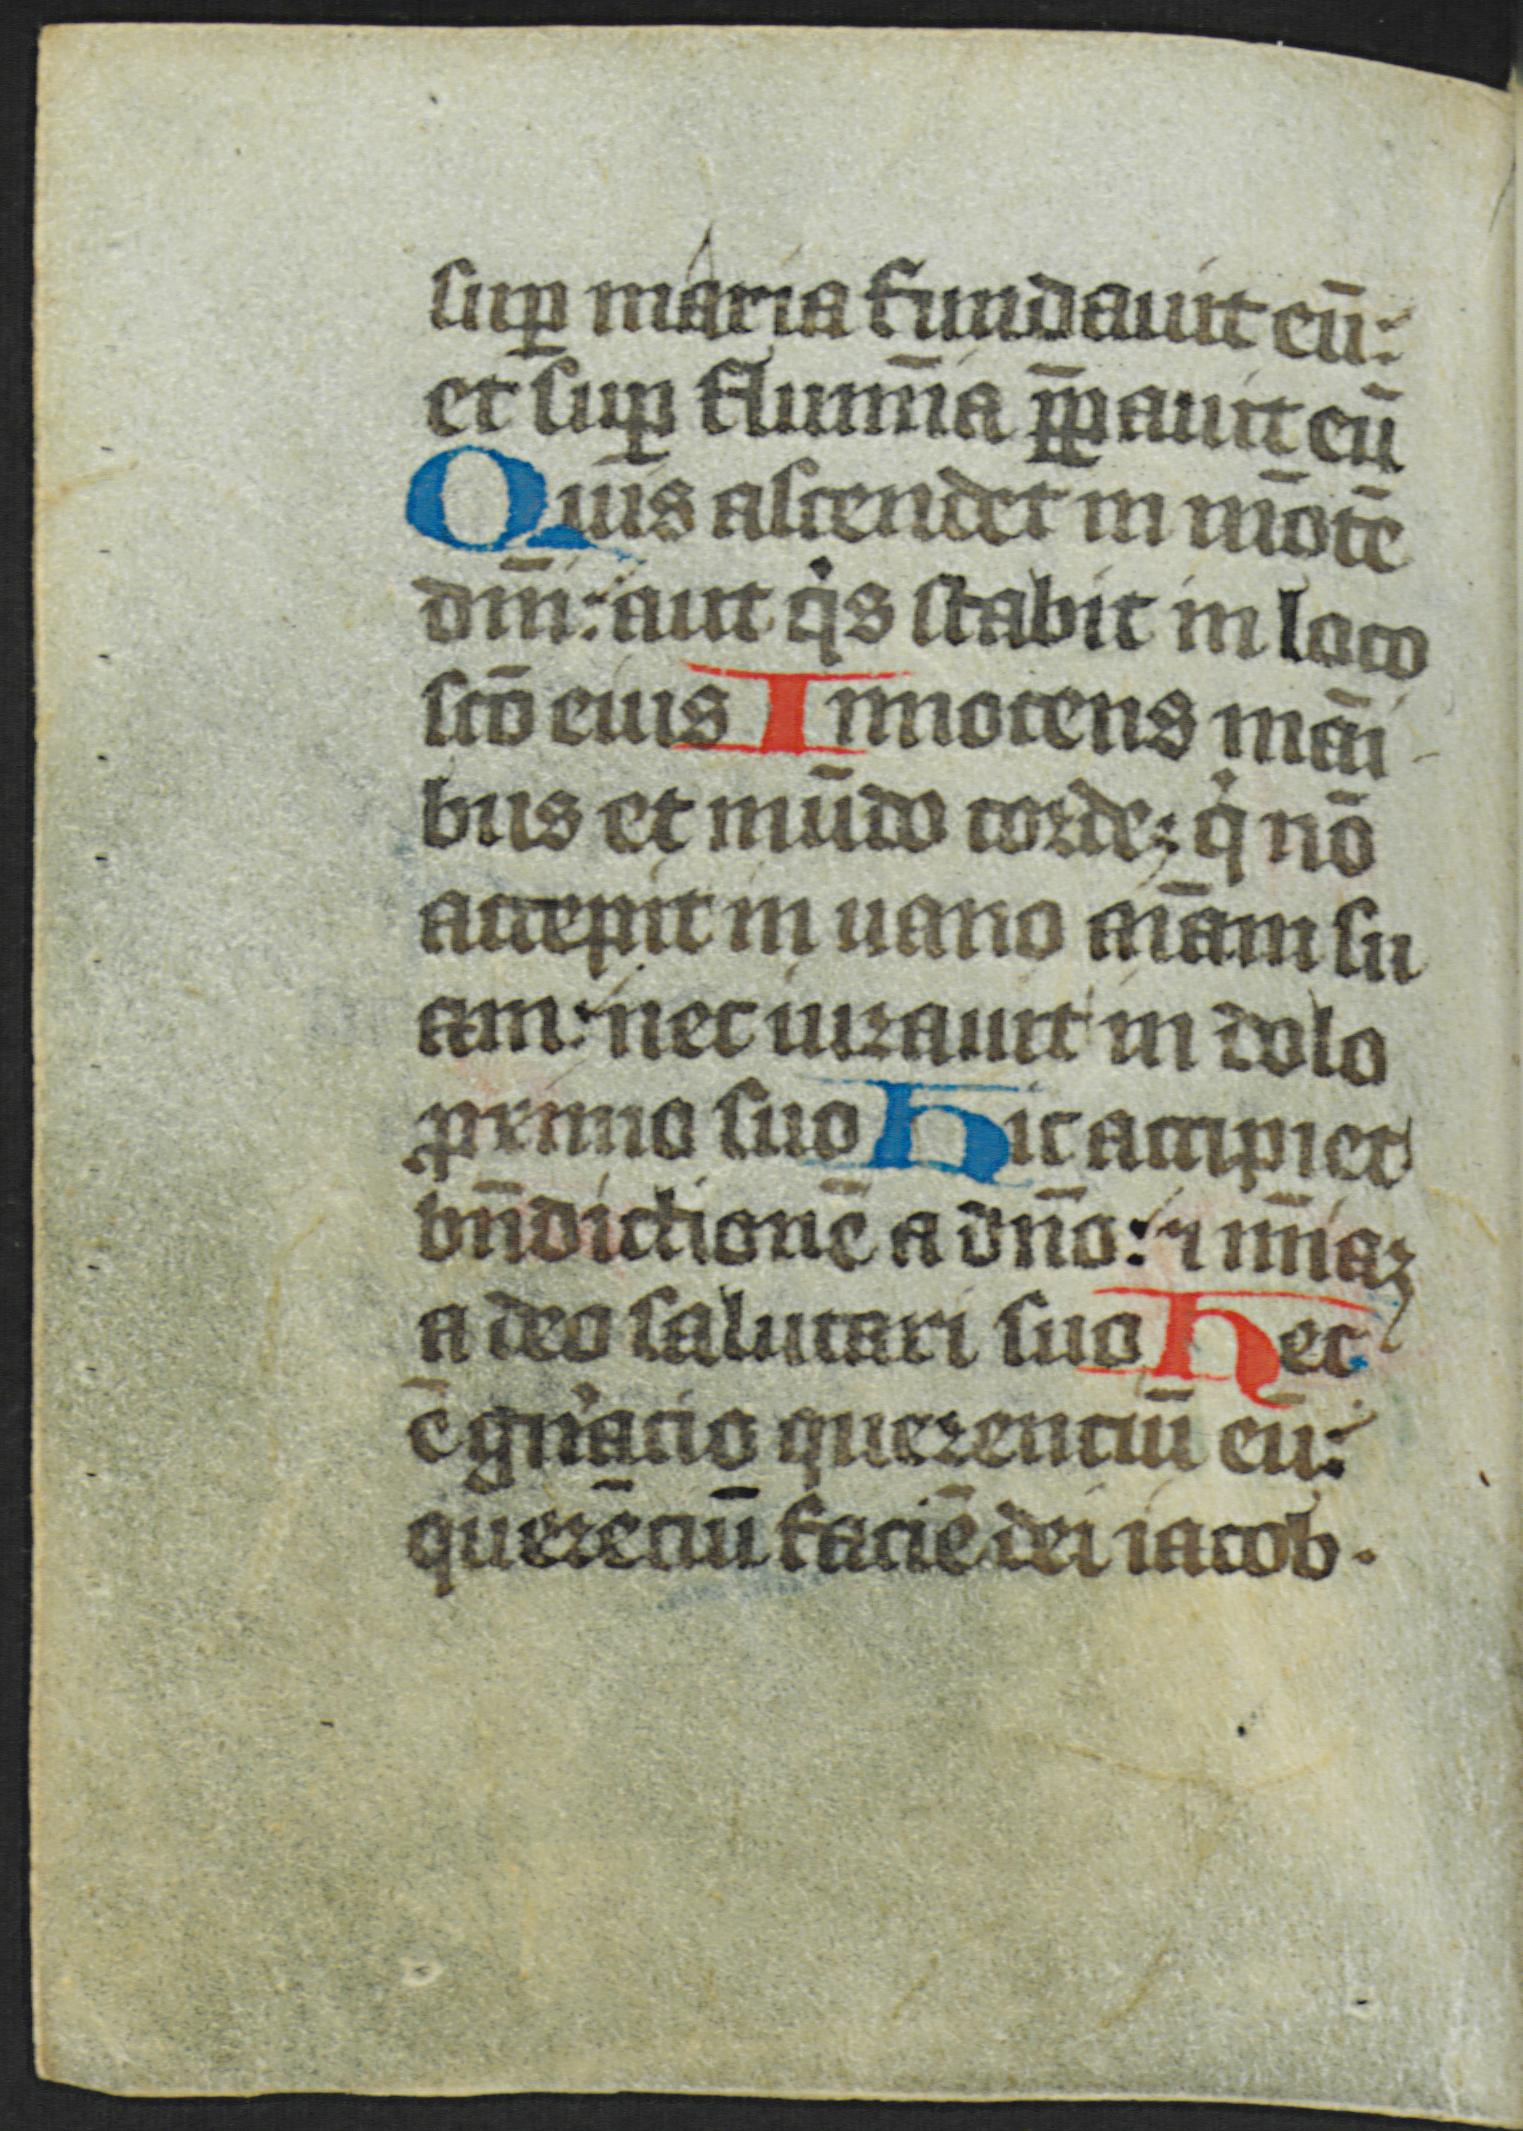 suꝑ maria fundauit eū:
et suꝑ flumīa p̄ꝑauit eū
Quis ascendet in mōtē
dm̄i: aut qͥs stabit in loco
sc̄o eius Innocens māi
bus et mūdo corde: qͥ nō
accepit in uano aīam su
am: nec iurauit in dolo
ꝓximo suo Hic accipiet
bn̄dictionē a dn̄o: ⁊ mīaꝫ
a deo salutari suo Hec
ē gn̄'atio querentiū eū:
querētiū faciē dei iacob.